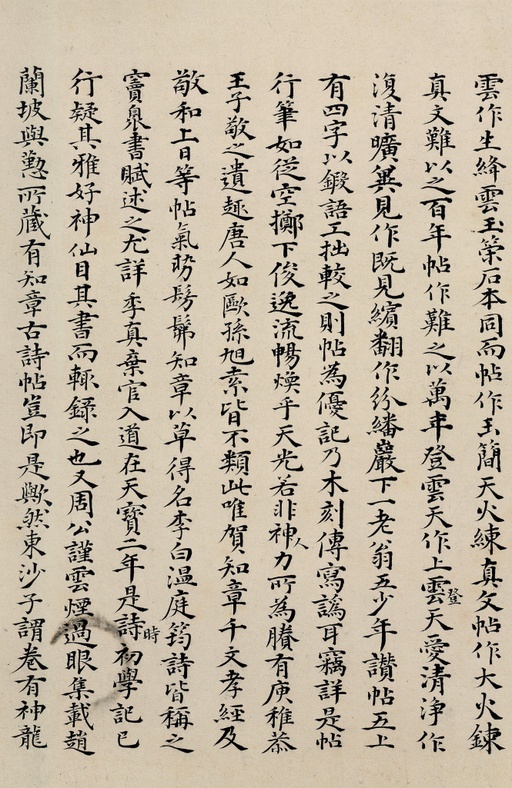 雲作生絳雲玉築石本同而帖作玉簡天火練真文帖作大火鍊
真文難以之百年帖作難之以萬年登雲天作上登雲天愛清淨作
復清曠無見作既見繽翻作紛繙巖下一老翁五少年讃帖五上
有四字以鍛語工拙較之則帖為優記乃木刻傳寫譌耳竊詳是帖
行筆如從空擲下俊逸流暢煥乎天光若非神人力所為賸有庾稚恭
王子敬之遺趣唐人如歐孫旭素皆不類此唯賀知章千文孝經及
敬和上日等帖氣勢髣髴知章以草得名李白温庭筠詩皆稱之
竇臮書賦述之尤詳季真棄官入道在天寶二年是詩時初學記已
行疑其雅好神仙目其書而輒録之也又周公謹雲煙過眼集載趙
蘭坡與懃所藏有知章古詩帖豈即是歟然東沙子謂卷有神龍